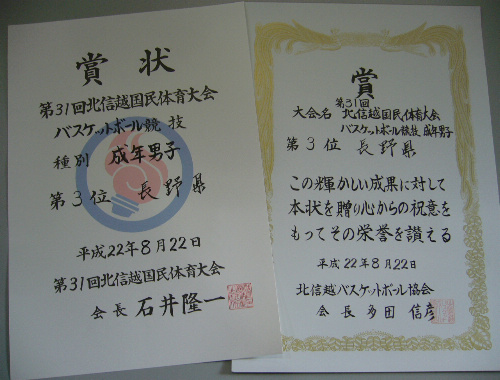 賞状
第31回北信越国民体育大会
バスケットボール競技
種別 成年男子
第3位 長野県
平成22年8月22日
第31回北信越国民体育大会
会長 石井隆一
賞
第31回
大会名 北信越国民体育大会
バスケットボール競技 成年男子
第3位 長野県
この輝かしい成果に対して
本状を贈り心からの祝意を
もってその栄誉を讃える
平成22年8月22日
北信越バスケットボール協会
会長 多田 信彦